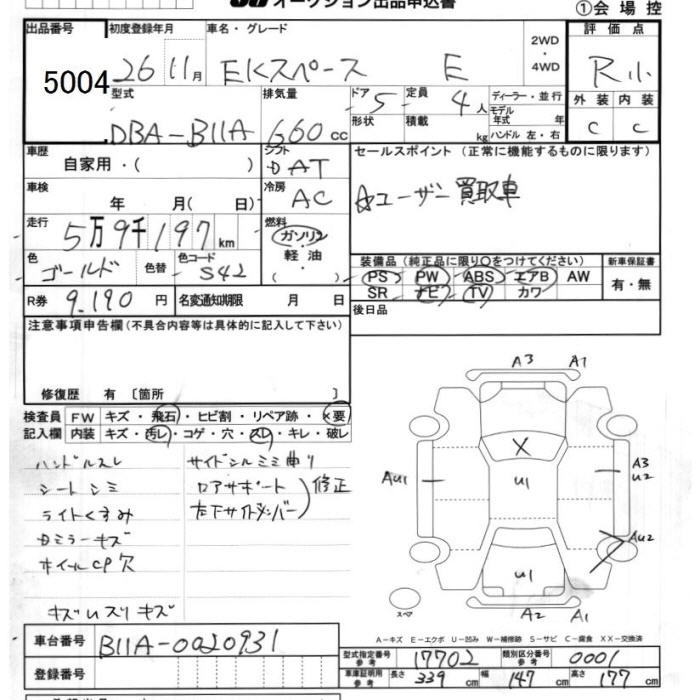 オークション出品申込書 ①会場控
出品番号 初度登録年月 車名・グレード 2WD・4WD 評価点
5004 26 11月 EKスペース E R小
型式 排気量 ドア 定員 ディーラー・並行 外装 内装
DBA-B11A 660cc 5 4人 モデル年式 年 C C
形状 積載 kg ハンドル 左・右
車歴 シフト セールスポイント(正常に機能するものに限ります)
自家用・( ) AT
車検 冷房 ユーザー買取車
年 月( 日) AC
走行 燃料
5万9千197km ガソリン
色 色替 色コード 軽油 装備品(純正品に限り○をつけてください) 新車保証書
ゴールド S42 ( ) PS PW ABS エアB AW 有・無
R券 9,190円 名変通知期限 月 日 SR ナビ TV カワ
注意事項申告欄(不具合内容等は具体的に記入して下さい) 後日品
修復歴 有 〔箇所
検査員 FW キズ・飛石・ヒビ割・リペア跡・×要
記入欄 内装 キズ・汚レ・コゲ・穴・スレ・キレ・破レ
ハンドルスレ サイドシルミミ曲り
シートシミ ロアサポート 修正
ライトくすみ 左下サイドメンバー
ミラーキズ
ホイールCP穴
キズUスリキズ
A3 A1
X
AU1 U1 A3
U2
AU2
U1
スペア
A2 A1
A-キズ E-エクボ U-凹み W-補修跡 S-サビ C-腐食 XX-交換済
車台番号 B11A-0020931
型式指定番号 参考 17702 類別区分番号 参考 0001
登録番号 車庫証明用 参考 長さ 339cm 幅 147cm 高さ 177cm